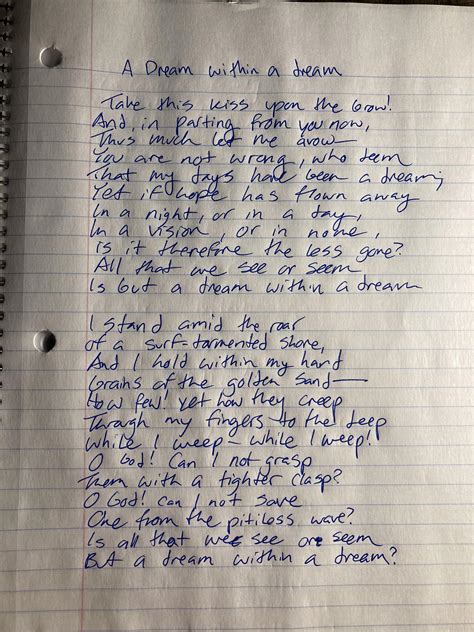 A Dream within a dream
Take this kiss upon the brow!
And, in parting from you now,
Thus much let me avow—
You are not wrong, who deem
That my days have been a dream;
Yet if hope has flown away
In a night, or in a day,
In a vision, or in none,
is it therefore the less gone?
All that we see or seem
Is but a dream within a dream
I stand amid the roar
of a surf-tormented shore,
And I hold within my hand
Grains of the golden sand—
How few! yet how they creep
Through my fingers to the deep
while I weep - while I weep!
O God! Can I not grasp
Them with a tighter clasp?
O God! can I not save
One from the pitiless wave?
Is all that we see or seem
But a dream within a dream?